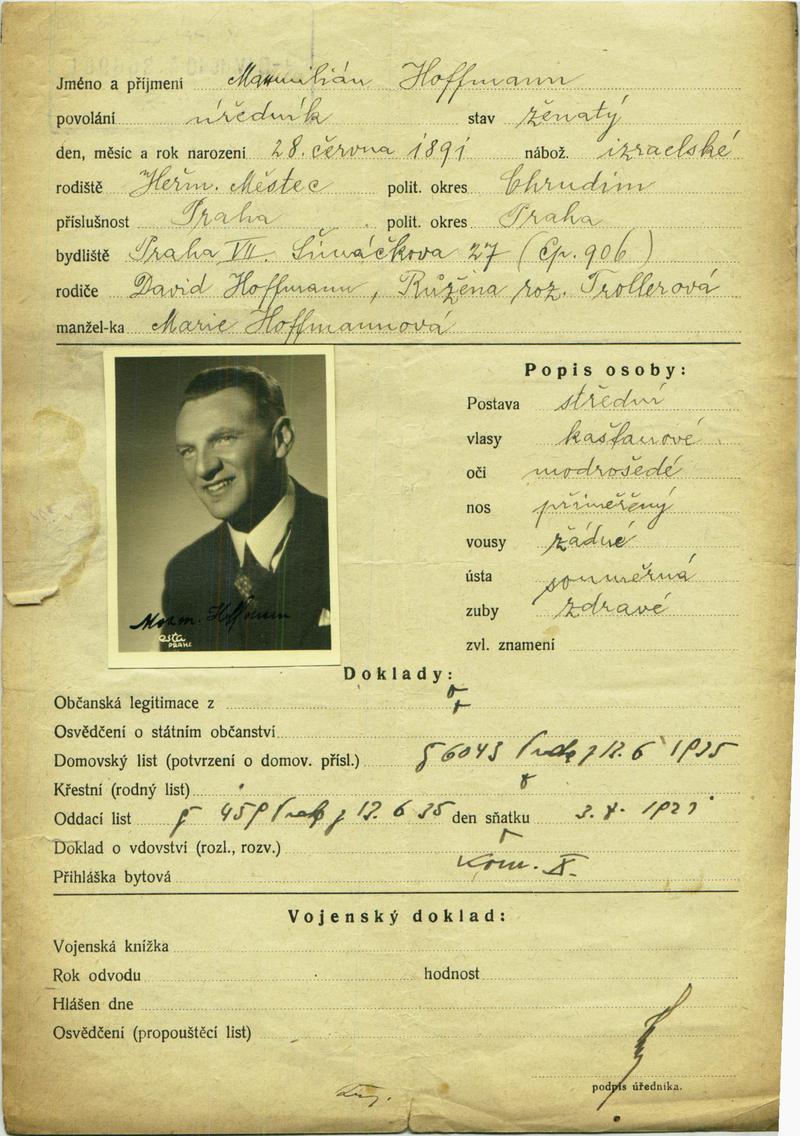 Jméno a příjmení Maxmilián Hoffmann
povolání úředník stav ženatý
den, měsíc a rok narození 28. června 1891 nábož. izraelské
rodiště Heřm. Městec polit. okres Chrudim
příslušnost Praha polit. okres Praha
bydliště Praha VII. Šimáčkova 27 (čp. 906)
rodiče David Hoffmann, Růžena roz. Trollerová
manžel-ka Marie Hoffmannová
Popis osoby:
Postava střední
vlasy kaštanové
oči modrošedé
nos přiměřený
vousy žádné
ústa souměrná
zuby zdravé
zvl. znamení
Maxm. Hoffmann
PRAHA
Doklady:
Občanská legitimace z
Osvědčení o státním občanství
Domovský list (potvrzení o domov. přísl.) 6043 12. 6 1935
Křestní (rodný list)
Oddací list 12. 6 35 den sňatku
Doklad o vdovství (rozl., rozv.)
Přihláška bytová kom. X.
Vojenský doklad:
Vojenská knížka
Rok odvodu hodnost
Hlášen dne
Osvědčení (propouštěcí list)
podpis úředníka.